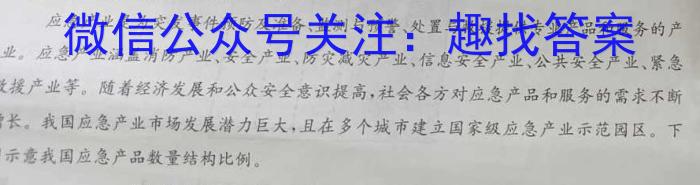 应急产业是为突发事件预防及准备、监测与预警、处置与救援提供专业产品和服务的产
微信公众号关注：趣找答案
业。应急产业涵盖消防产业、安全产业、防灾减灾产业、信息安全产业、公共安全产业、紧急
救援产业等。随着经济发展和公众安全意识提高，社会各方对应急产品和服务的需求不断
增长。我国应急产业市场发展潜力巨大，且在多个城市建立国家级应急产业示范园区。下
示意我国应急产品数量结构比例。